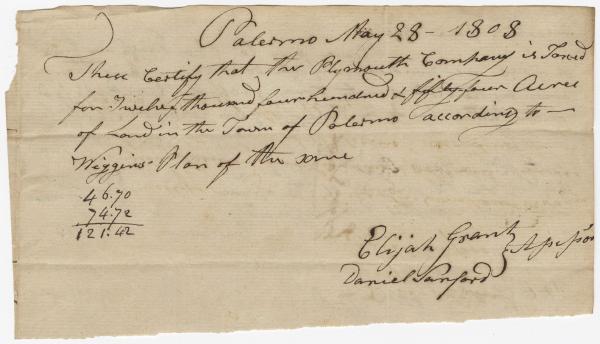 Palermo May 28 - 1808
These Certify that the Plymouth Company is Taxed
for Twelve thousand four hundred & fifty four Acres
of Land in the Town of Palermo according to
Wiggins Plan of the same
46.70
74.72
121.42
Elijah Grant
Daniel Sanford } Assessors